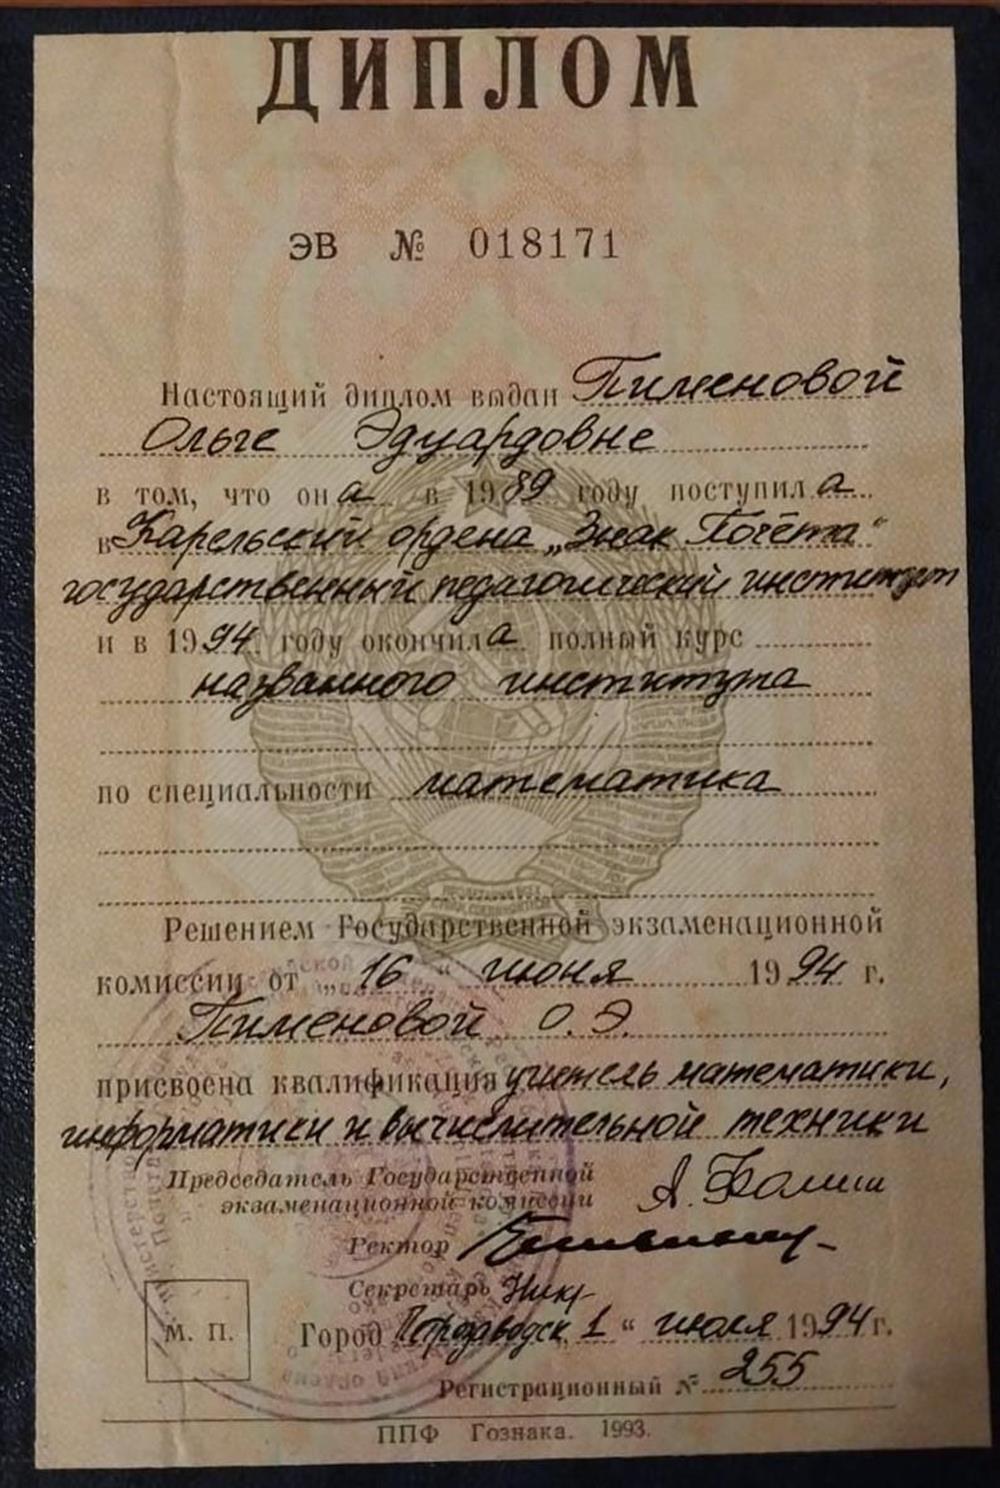 ДИПЛОМ
ЭВ № 018171
Настоящий диплом выдан Пименовой
Ольге Эдуардовне
в том, что она в 1989 году поступила
в Карельский ордена „Знак Почёта“
государственный педагогический институт
и в 1994 году окончила полный курс
названного института
по специальности математика
Решением Государственной экзаменационной
комиссии от „16“ июня 1994 г.
Пименовой О.Э.
присвоена квалификация учитель математики,
информатики и вычислительной техники
Председатель Государственной
экзаменационной комиссии
Ректор
Секретарь
М. П.
Город Петрозаводск 1 “ июля 1994 г.
Регистрационный № 255
ППФ Гознака. 1993.